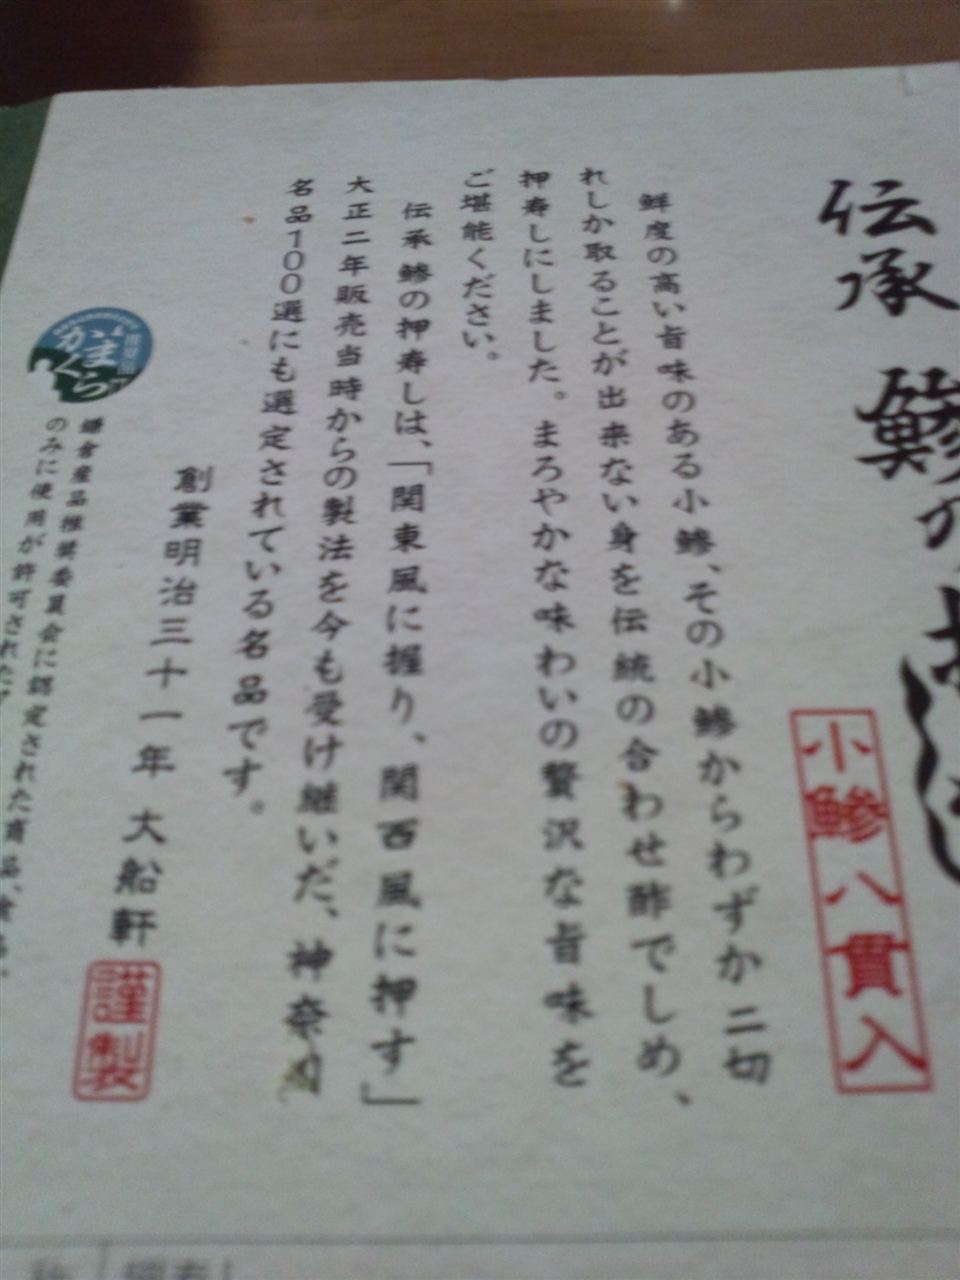 伝承 鯵の押寿し
小鯵八貫入
鮮度の高い旨味のある小鯵、その小鯵からわずか二切
れしか取ることが出来ない身を伝統の合わせ酢でしめ、
押寿しにしました。まろやかな味わいの贅沢な旨味を
ご堪能ください。
伝承 鯵の押寿しは、「関東風に握り、関西風に押す」
大正二年販売当時からの製法を今も受け継いだ、神奈川
名品100選にも選定されている名品です。
創業明治三十一年 大船軒
謹製
かまくら
鎌倉産品推奨委員会に認定された商品、
のみに使用が許可された